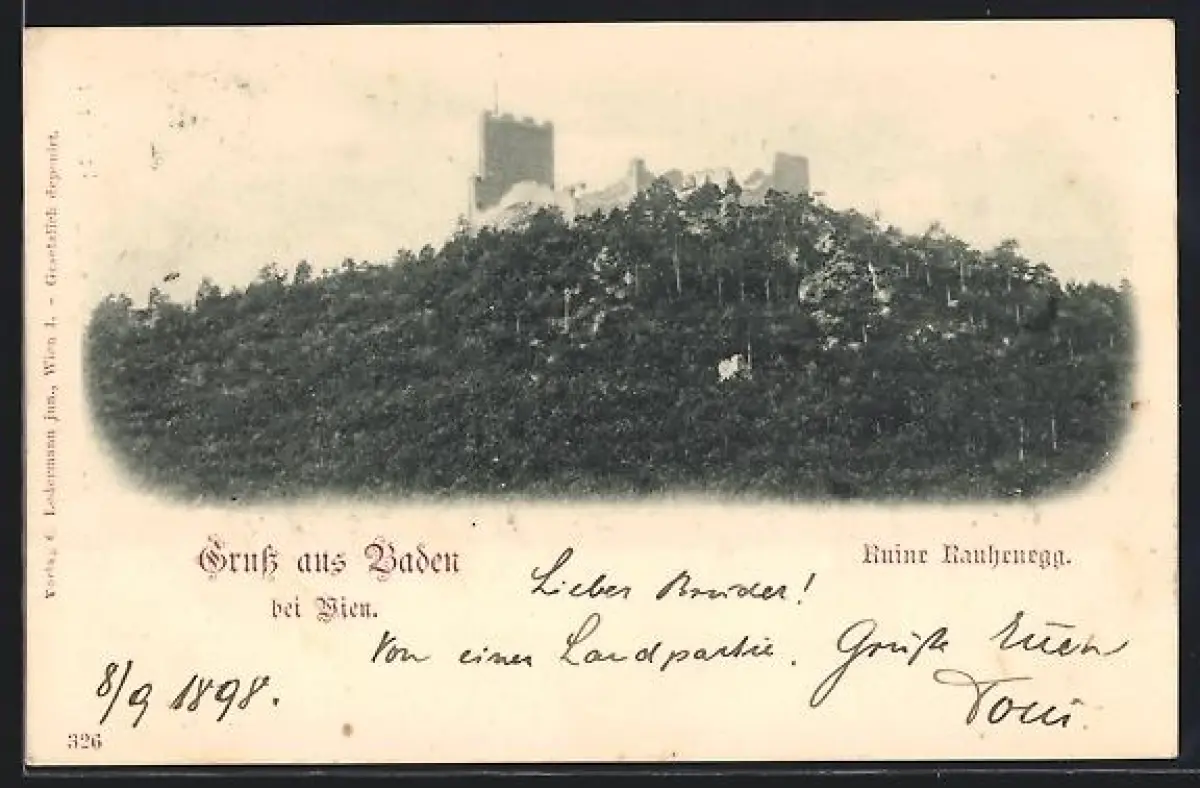 Verlag C. Ledermann jun., Wien I. – Gesetzlich deponirt.
Gruß aus Baden
bei Wien.
Ruine Rauhenegg.
Lieber Bruder!
Von einer Landpartie. Grüßt Euch
Toni
8/9 1898.
326